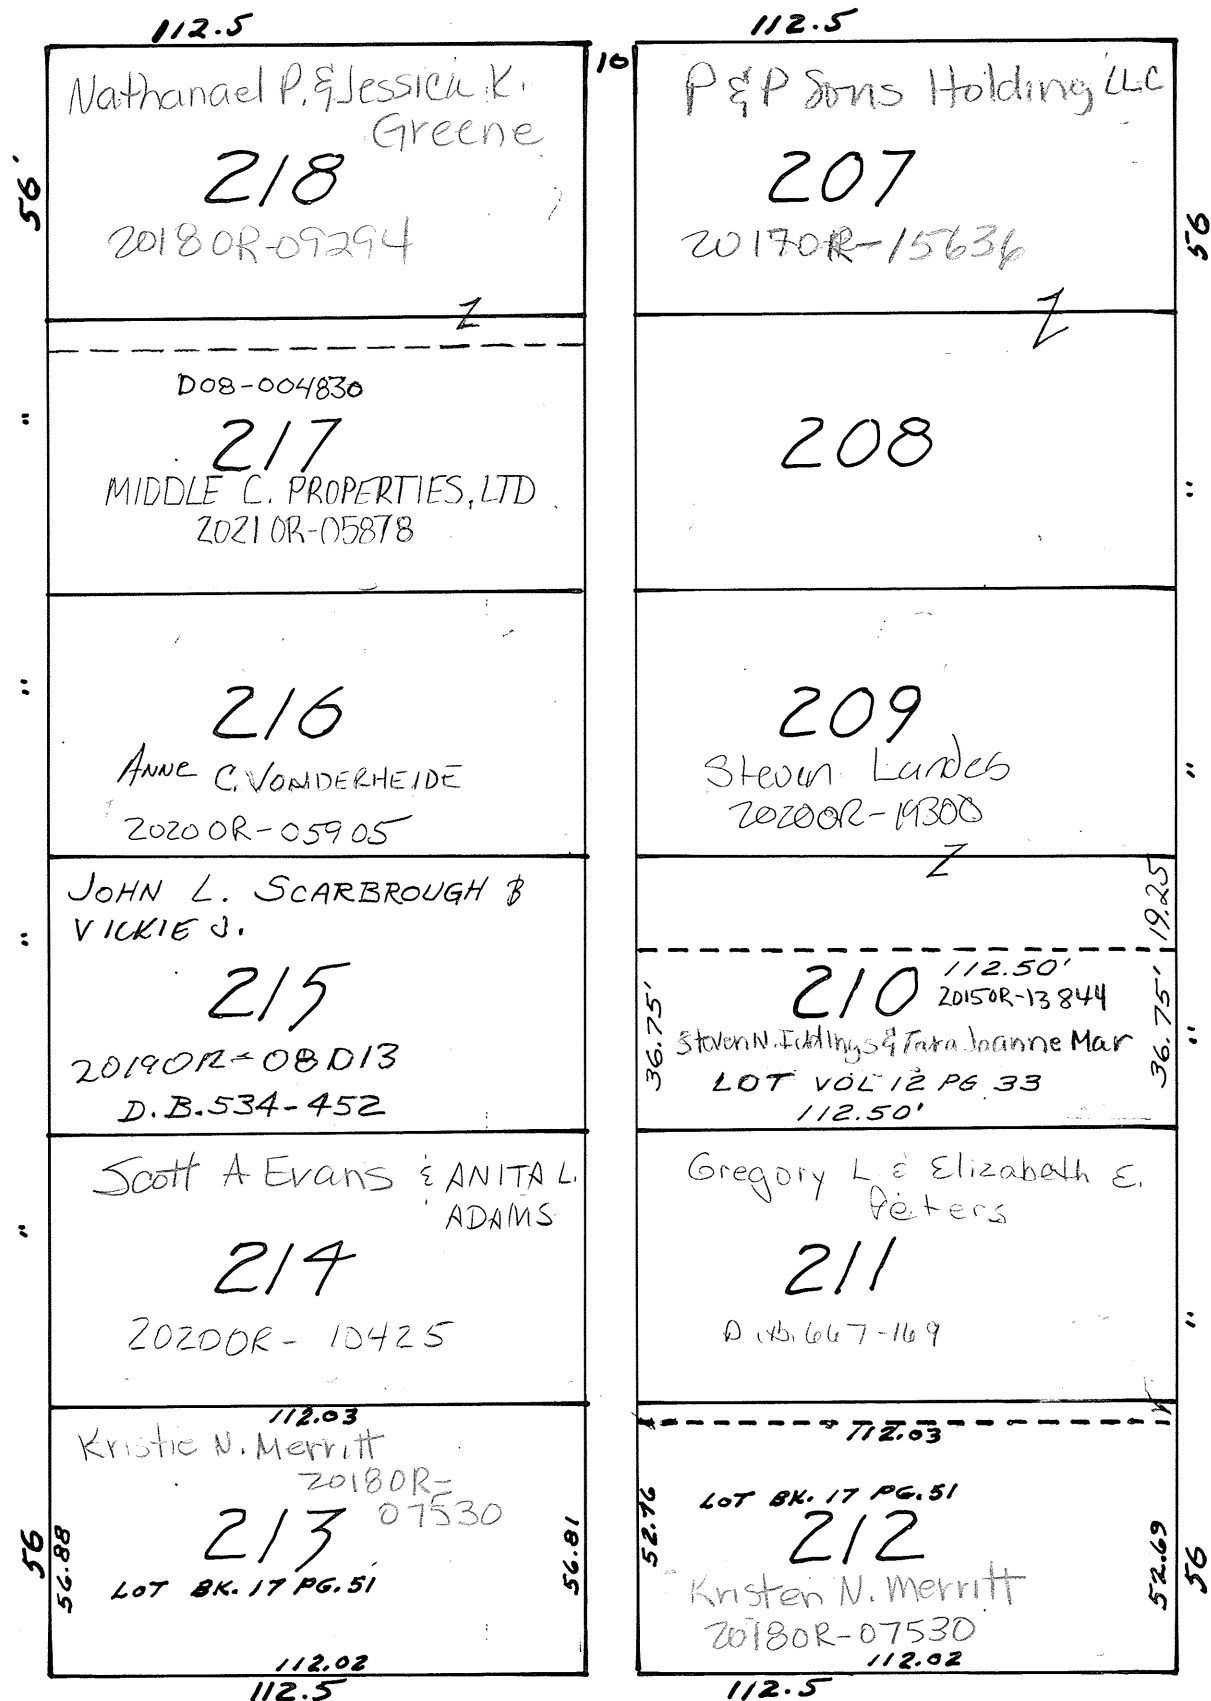 112.5
Nathanael P. & Jessica K.
Greene
218
2018OR-09294
56'
Z
D08-004830
217
MIDDLE C. PROPERTIES, LTD
2021OR-05878
"
216
ANNE C. VONDERHEIDE
2020OR-05905
"
JOHN L. SCARBROUGH &
VICKIE J.
215
2019OR-08013
D.B. 534-452
"
Scott A Evans & ANITA L.
ADAMS
214
2020OR-10425
"
112.03
Kristie N. Merritt
2018OR-
07530
213
LOT BK. 17 PG. 51
56
56.88
56.81
112.02
112.5
10
112.5
P & P Sons Holding LLC
207
2017OR-15636
56
Z
208
"
209
Steven Landes
2020OR-19300
"
Z
19.25
210
112.50'
2015OR-13844
Steven N. Eddings & Tara Joanne Mar
LOT VOL 12 PG 33
112.50'
36.75'
36.75'
"
Gregory L & Elizabeth E.
Peters
211
D.B. 667-169
"
112.03
LOT BK. 17 PG. 51
212
Kristen N. Merritt
2018OR-07530
52.76
52.69
56
112.02
112.5